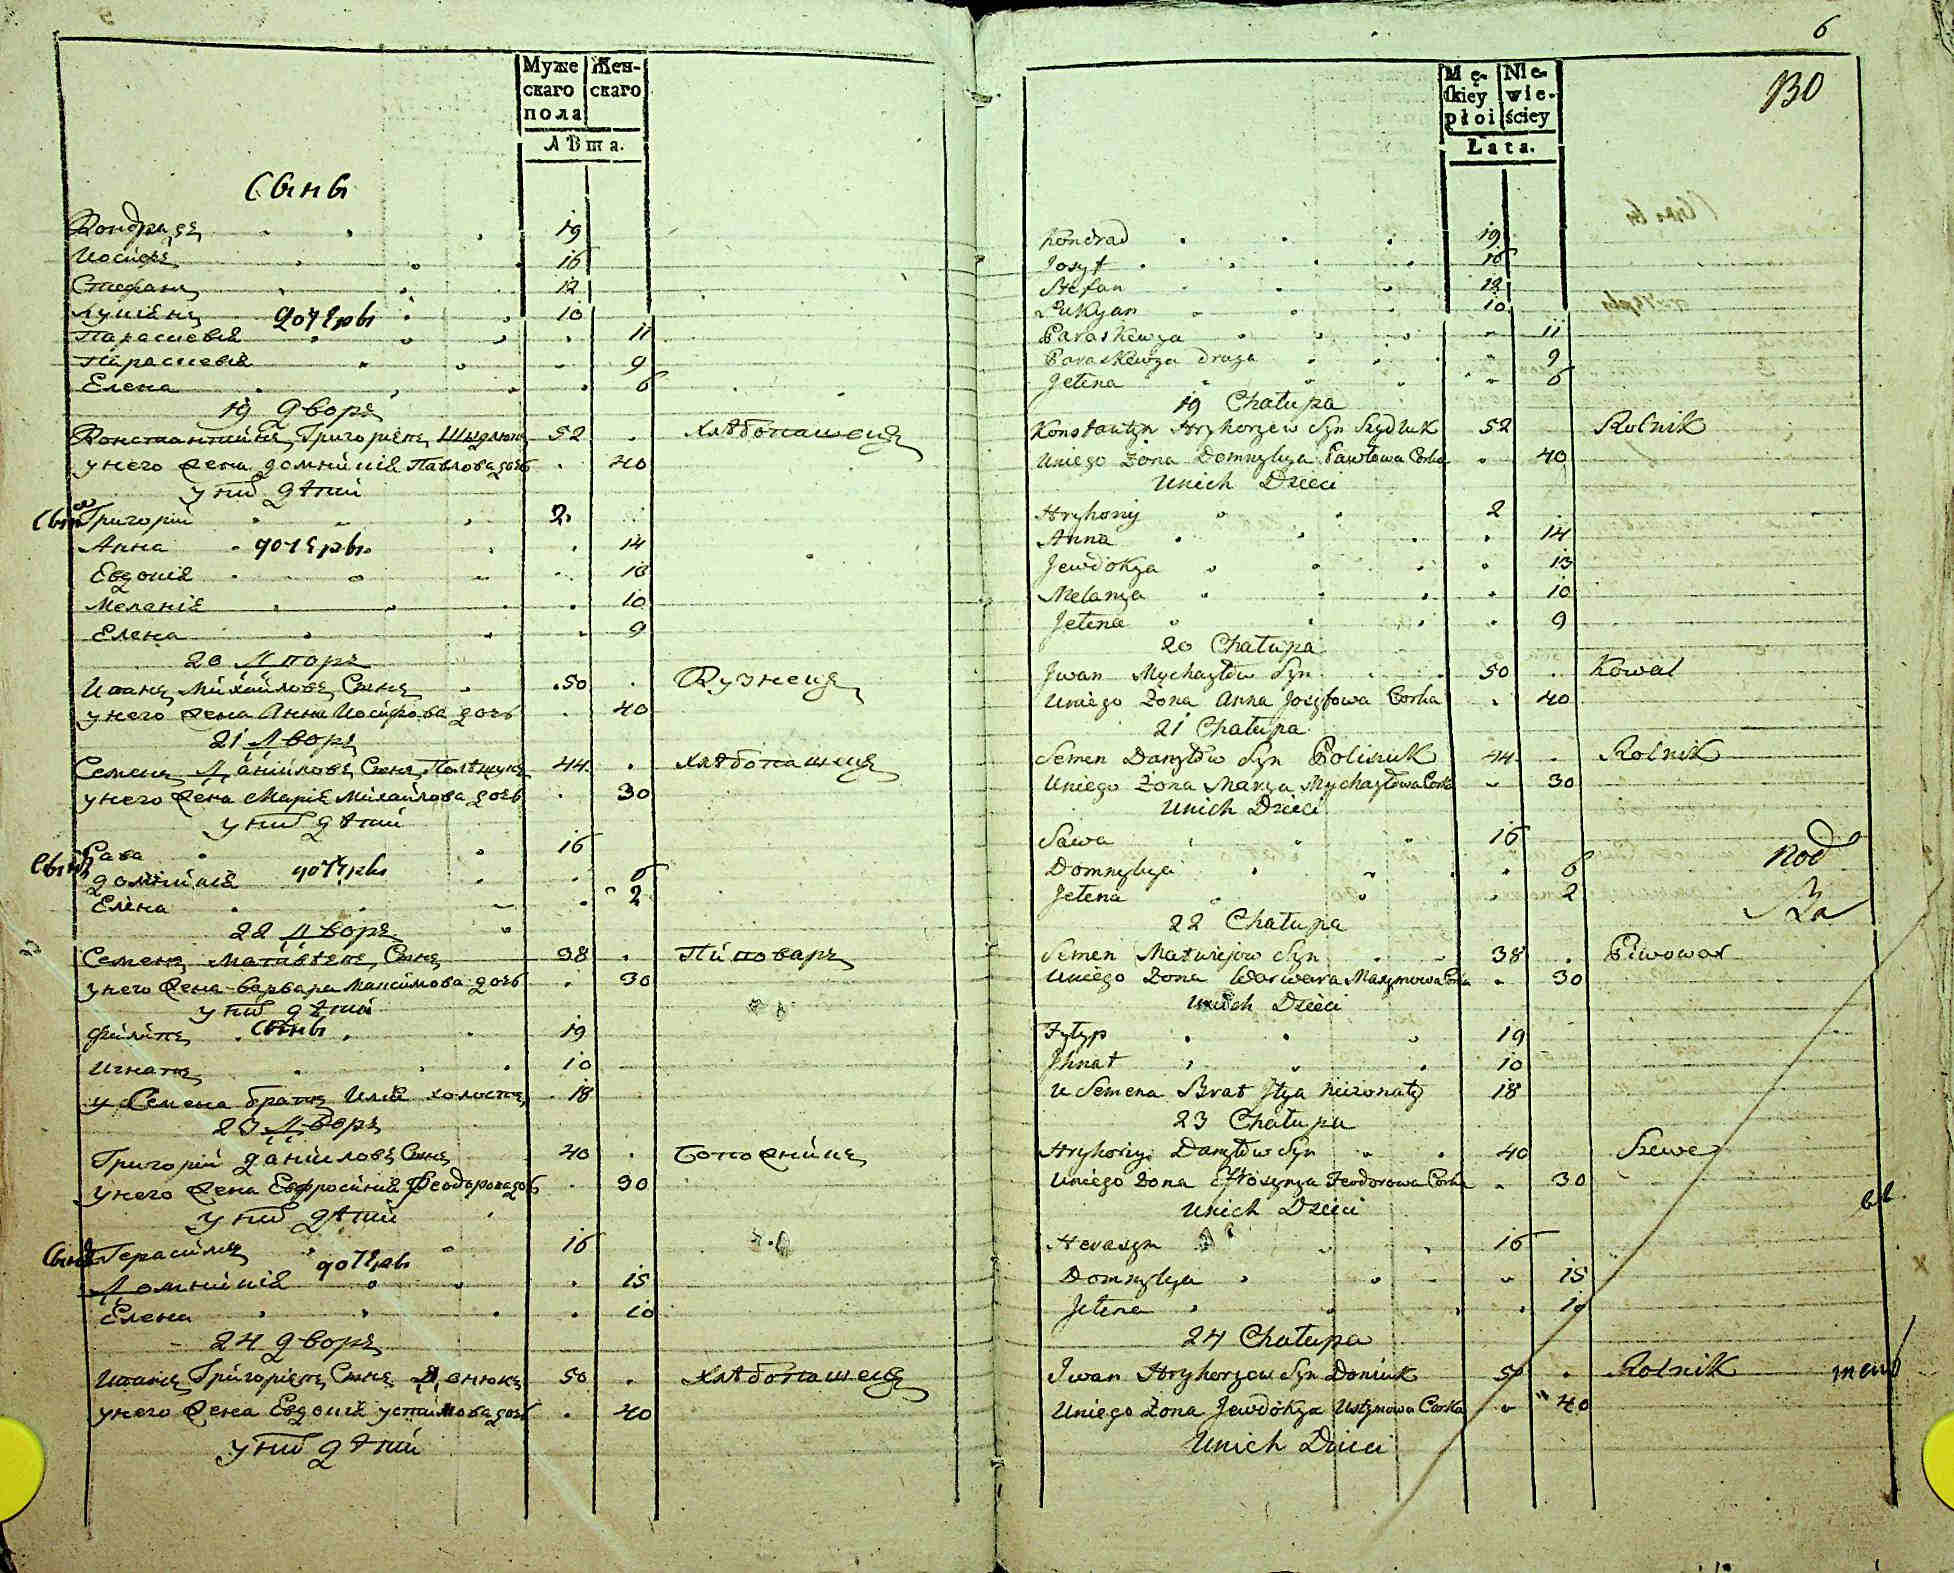 Муже Жен-
скаго скаго
пола
Лѣта.
Сыны
Кондратъ 19
Иосифъ 16
Стефанъ 12
Лукіянъ 10
дочери
Параскевія 11
Параскевія 9
Елена 6
19 дворъ
Константинъ Григоріевъ Шидлюкъ 52 хлѣбопашецъ
у него жена домникія Павлова дочь 40
у них дѣтий
Сынъ Григорій 2
Анна дочери 14
Евдокія 13
Меланія 10
Елена 9
20 Дворъ
Иванъ Михайловъ Сынъ 50 Кузнецъ
у него жена Анна Иосифова дочь 40
21 Дворъ
Семенъ Даниловъ Сынъ Полѣщукъ 44 хлѣбопашецъ
у него жена Марія Михайлова дочь 30
у них дѣтий
Сынъ Сава 16
дочери
домникія 6
Елена 2
22 Дворъ
Семенъ Матвѣевъ Сынъ 38 Пивоваръ
у него жена варвара Максимова дочь 30
у них дѣтий
Сыны
Филипъ 19
Игнатъ 10
у Семена братъ Илія холостъ 18
23 Дворъ
Григорій даниловъ Сынъ 40 Сапожникъ
у него жена Евфросинія Феодорова дочь 30
у них дѣтий
Сынъ Герасимъ 16
дочери
Домникія 15
Елена 10
24 дворъ
Иванъ Григоріевъ Сынъ Донюкъ 50 хлѣбопашецъ
у него жена Евдокія устимова дочь 40
у них дѣтий
6
130
Mę- Nie-
skiey wie-
płci ściey
Łata.
Kondrad 19
Josyf 16
Stefan 12
Łukyan 10
Paraskewya 11
Paraskewya druga 9
Jełena 6
19 Chałupa
Konstantyn Hryhorzew Syn Szydluk 52 Rolnik
Uniego Żona Domnykya Pawłowa Corka 40
Unich Dzieci
Hryhory 2
Anna 14
Jewdokya 13
Melanya 10
Jełena 9
20 Chałupa
Jwan Mychayłów Syn 50 Kowal
Uniego Żona Anna Jozyfowa Corka 40
21 Chałupa
Semen Danyłów Syn Poliszuk 44 Rolnik
Uniego Żona Marya Mychayłowa Corka 30
Unich Dzieci
Sawa 16
Domnykya 6
Jełena 2
22 Chałupa
Semen Matwiejow Syn 38 Piwowar
Uniego Żona Warwara Maxymowa Corka 30
Unich Dzieci
Fylyp 19
Jhnat 10
u Semena Brat Jlya nieżonaty 18
23 Chałupa
Hryhory Danyłów Syn 40 Szewc
Uniego Żona Jefrosynya Feodorowa Corka 30
Unich Dzieci
Herasym 16
Domnykya 15
Jełena 10
24 Chałupa
Jwan Hryhorzew Syn Doniuk 50 Rolnik
Uniego Żona Jewdokya Ustymowa Corka 40
Unich Dzieci